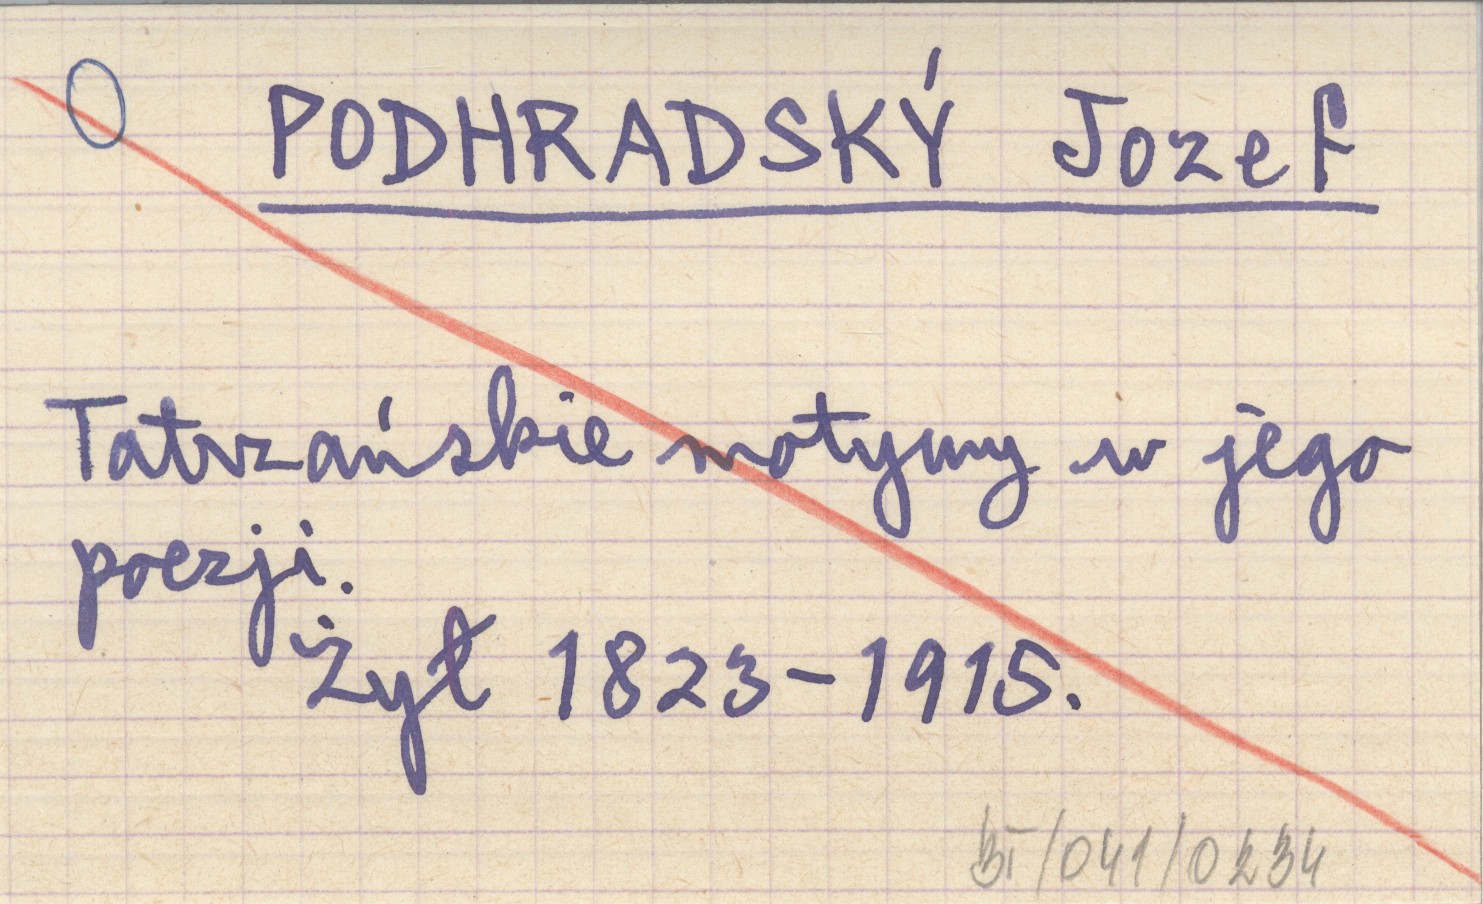 PODHRADSKÝ Jozef
Tatrzańskie motywy w jego
poezji.
Żył 1823-1915.
BT/041/0234